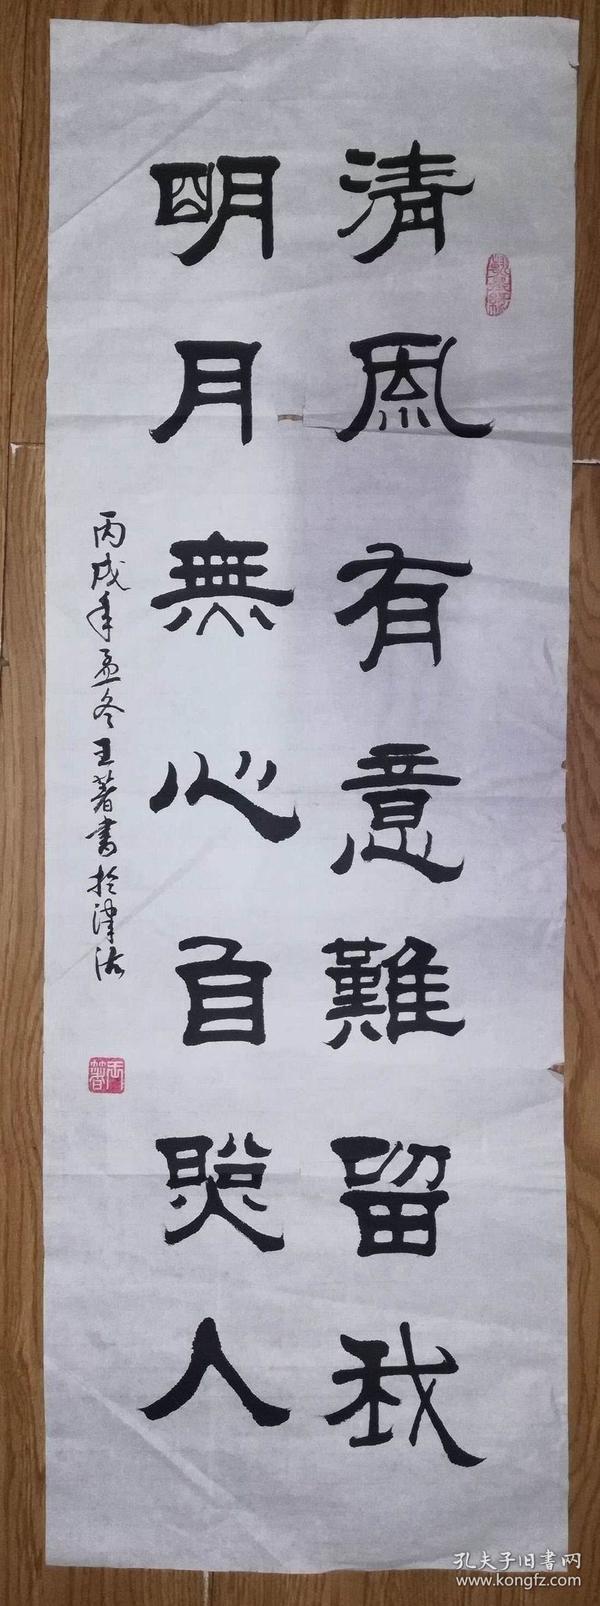 清風有意難留我
明月無心自照人
丙戌年孟冬王著書於津沽
孔夫子旧書网
www.kongfz.com